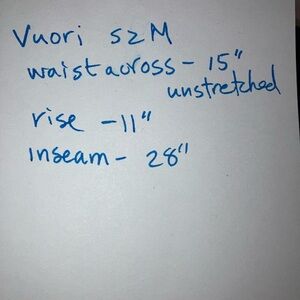 Vuori sz M
waist across - 15"
unstretched
rise - 11"
inseam - 28"